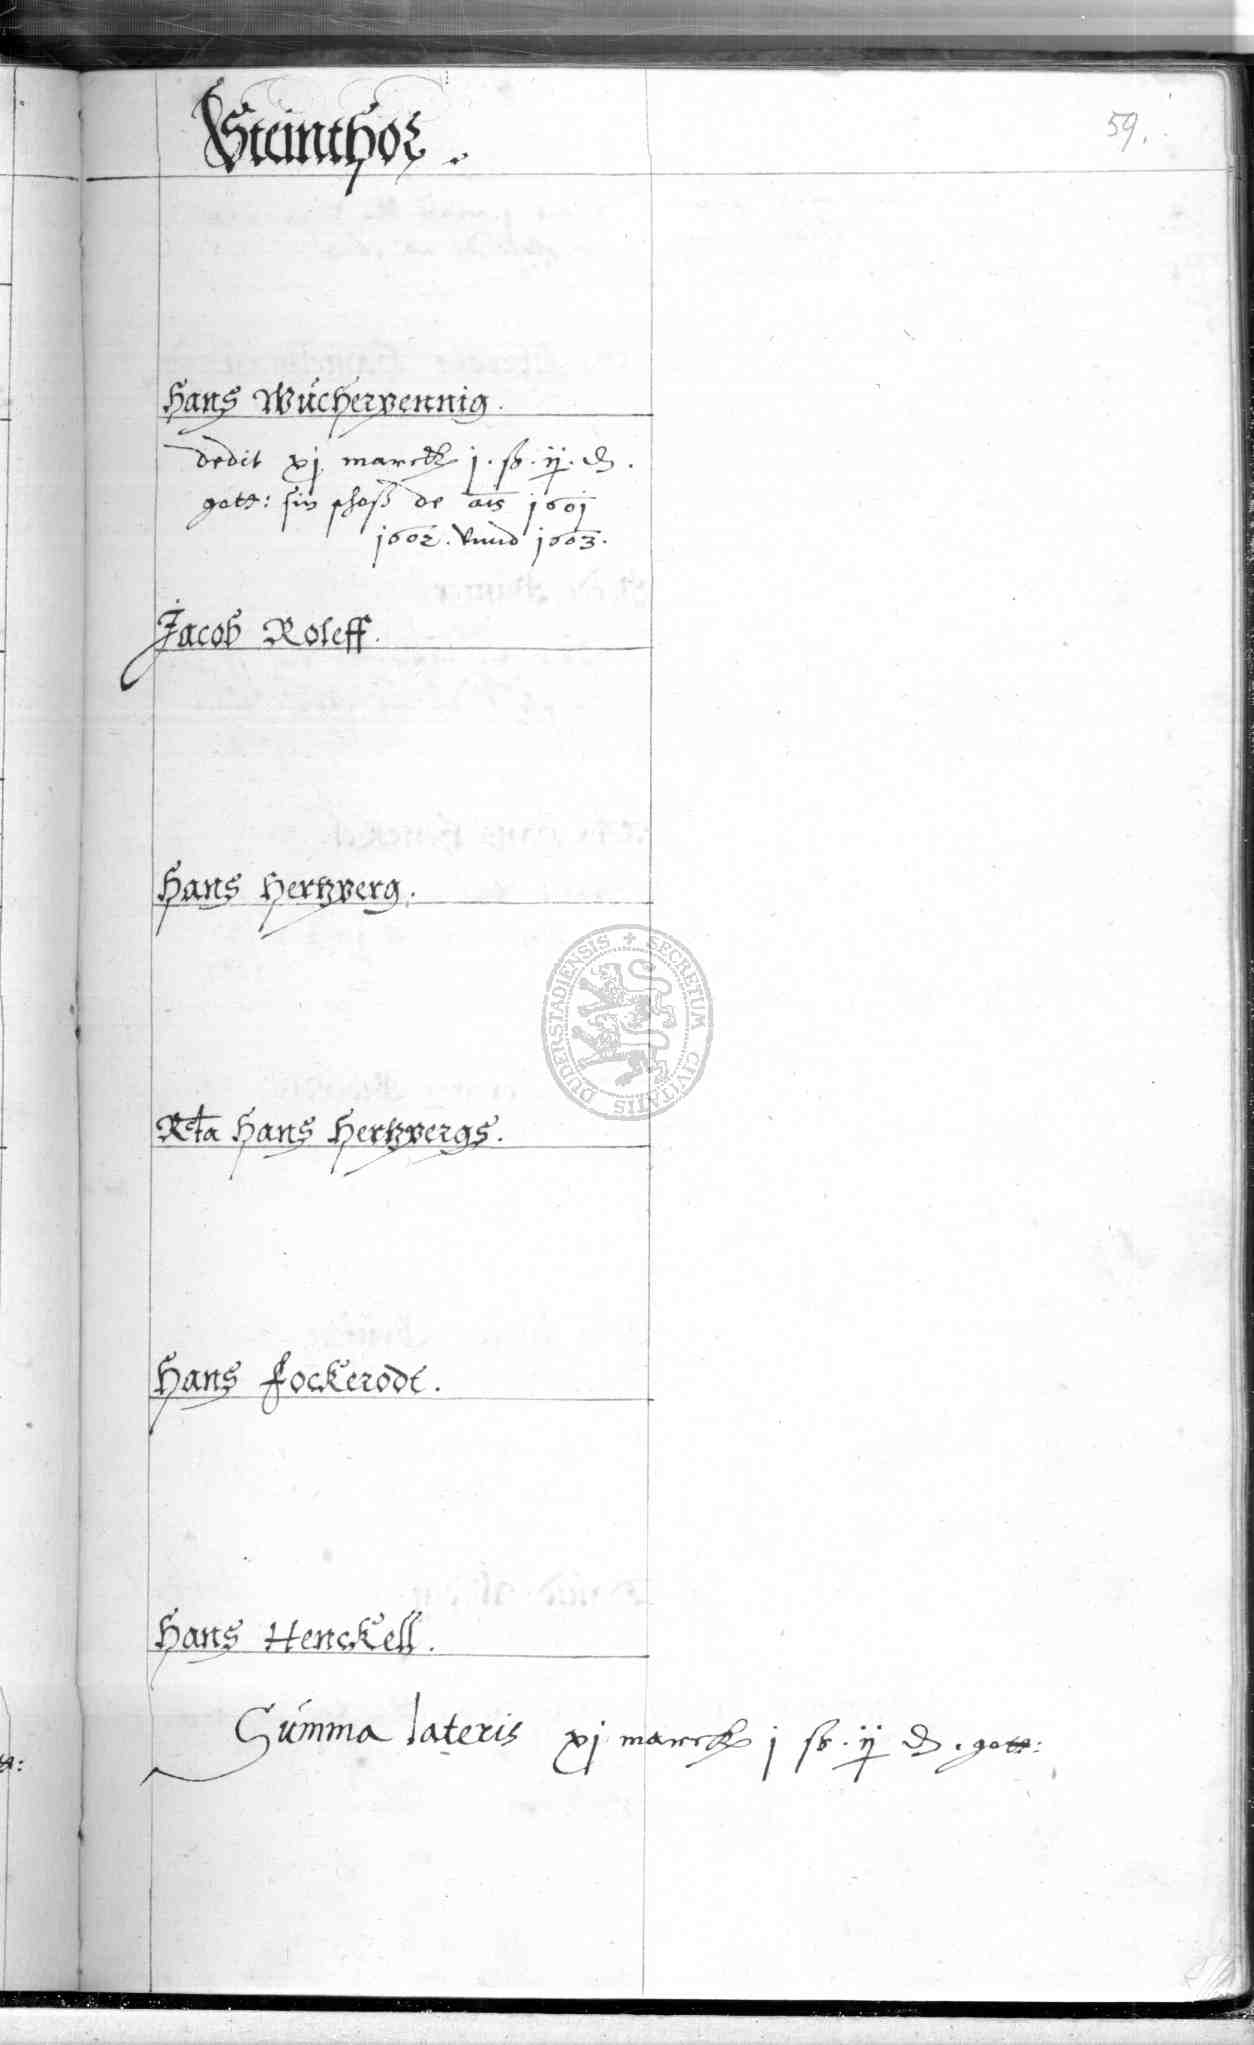 Steinthor.
59.
Hans Wúcherpennig.
dedit xj marck j. ß. ij. d.
gott: sin schoß de ais 1601
1602. vnnd 1603.
Jacob Roleff.
Hans Hertzberg.
Rcta Hans Hertzbergs.
Hans Fockerodt.
Hans Henckell.
Súmma lateris xj marck j ß. ij d. gott:
SECRETUM CIVITATIS DUDERSTADIENSIS